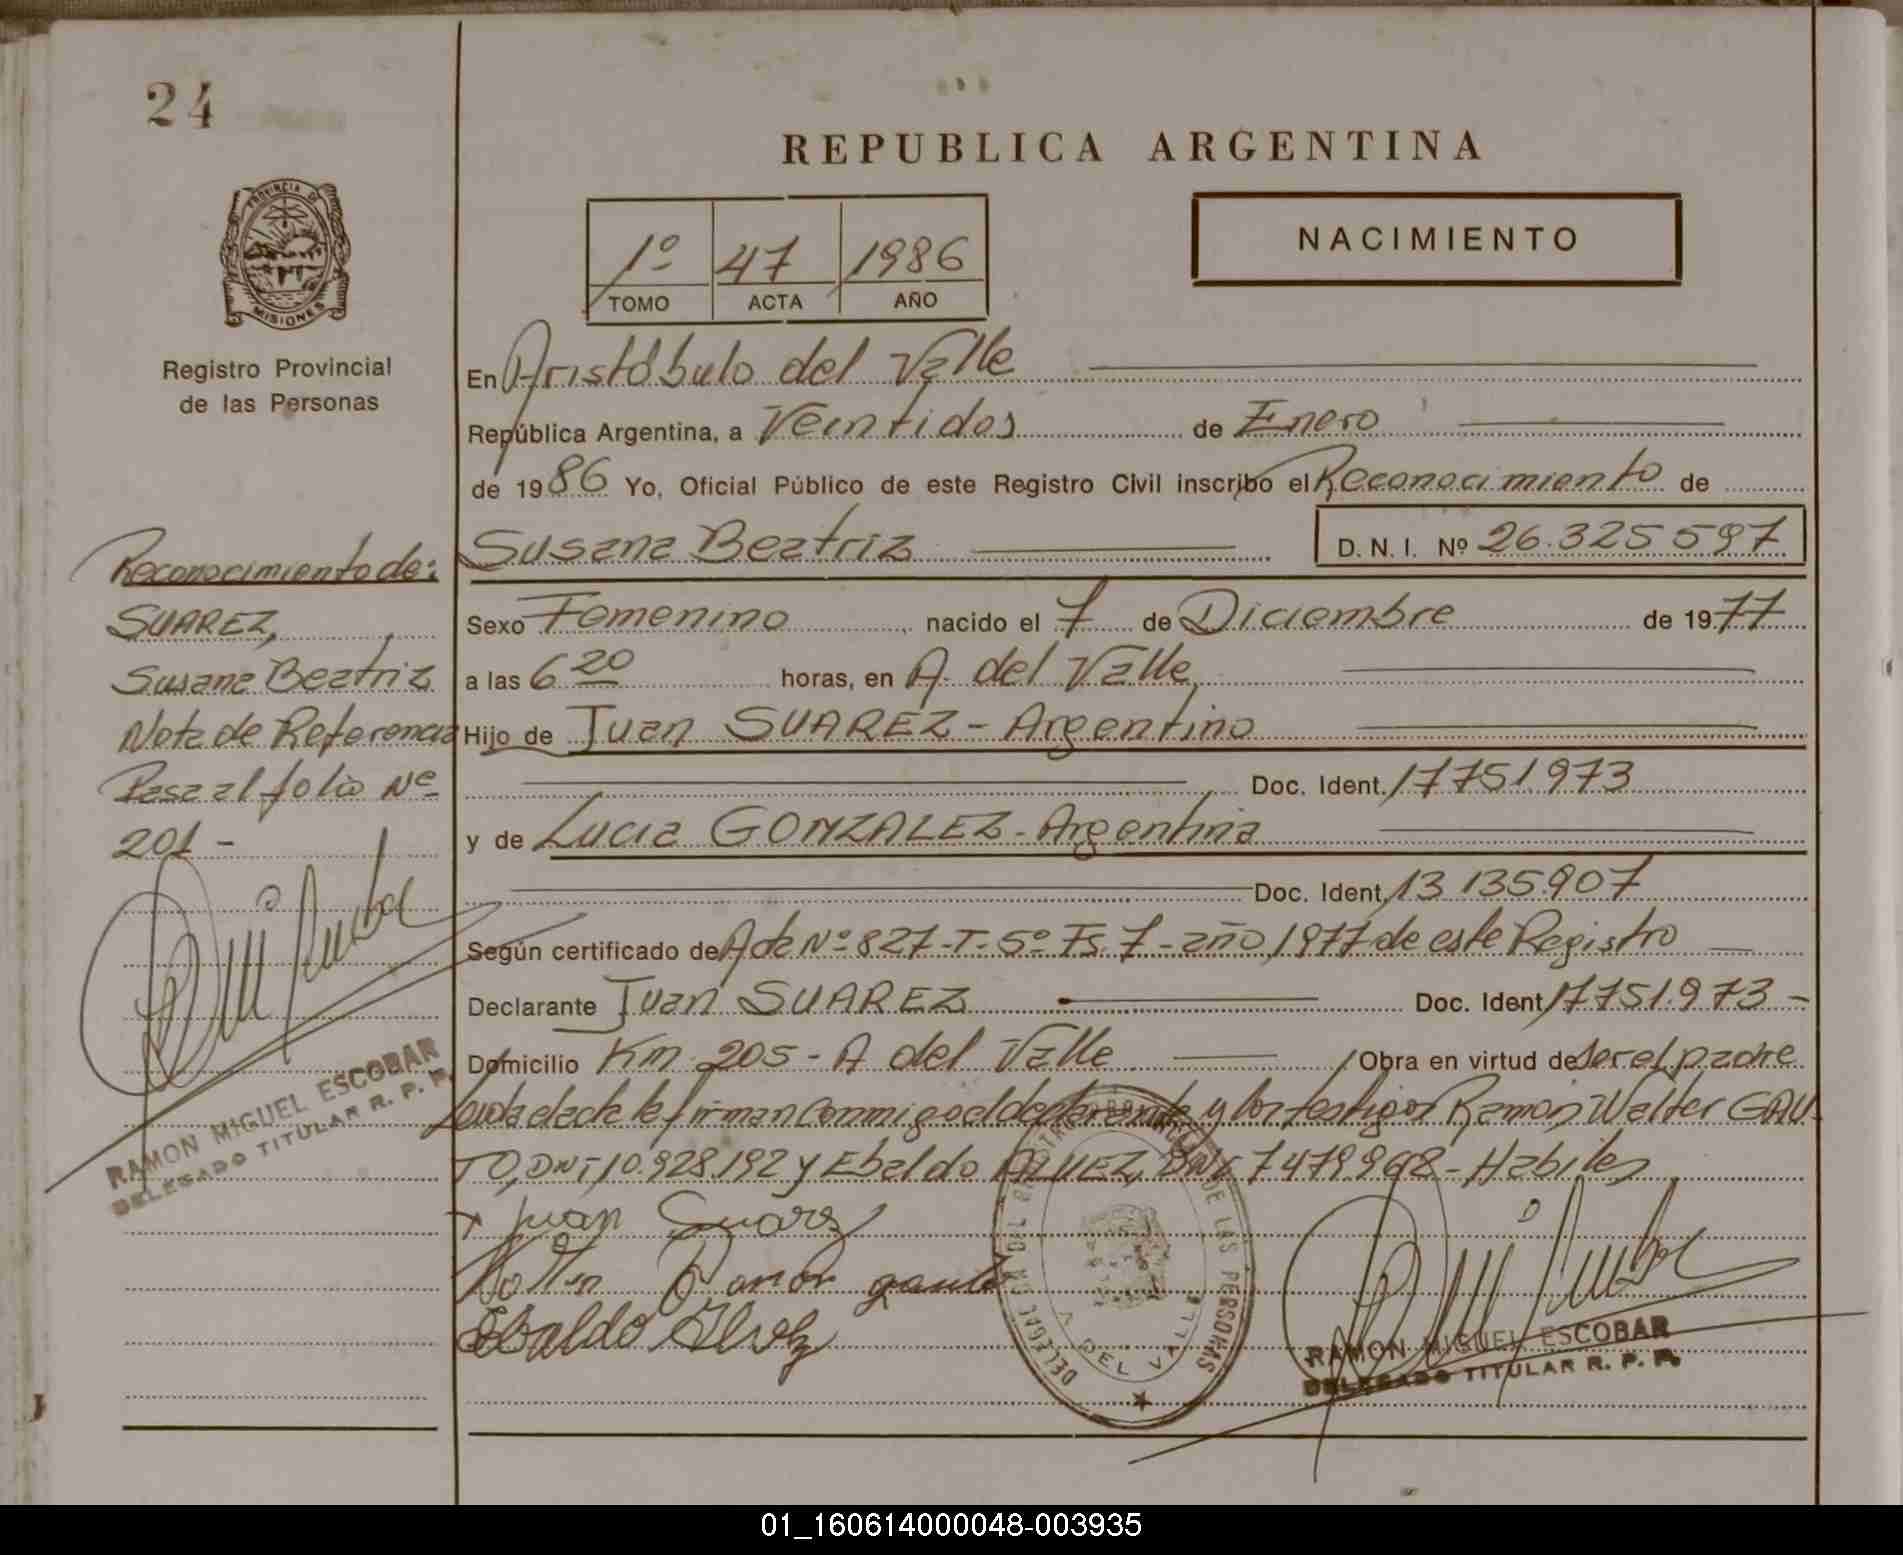 24
REPUBLICA ARGENTINA
PROVINCIA DE
MISIONES
Registro Provincial
de las Personas
1º 47 1986
TOMO ACTA AÑO
NACIMIENTO
En Aristóbulo del Valle
República Argentina, a Veintidos de Enero
de 1986 Yo, Oficial Público de este Registro Civil inscribo el Reconocimiento de
Susana Beatriz D.N.I. Nº 26.325597
Sexo Femenino nacido el 7 de Diciembre de 1977
a las 6 20 horas, en A. del Valle
Hijo de Juan SUAREZ - Argentino
Doc. Ident. 17751.973
y de Lucia GONZALEZ - Argentina
Doc. Ident. 13135.907
Según certificado de A de Nº 827-T-5º Fs. 7 - año 1977 de este Registro
Declarante Juan SUAREZ Doc. Ident 17751.973 -
Domicilio Km 205 - A del Valle Obra en virtud de ser el padre
Leida el acta la firman conmigo el declarante y los testigos Ramon Walter GAU-
TO, DNI 10.928.192 y Ebaldo DNI 7479968 - Habiles
Juan Suarez
Ramon gauto
Ebaldo
Reconocimiento de:
SUAREZ,
Susana Beatriz
Nota de Referencia
Pasa al folio Nº
201 -
RAMON MIGUEL ESCOBAR
DELEGADO TITULAR R. P. P.
DE LAS PERSONAS
A DEL VALLE
RAMON MIGUEL ESCOBAR
DELEGADO TITULAR R. P. P.
01_160614000048-003935